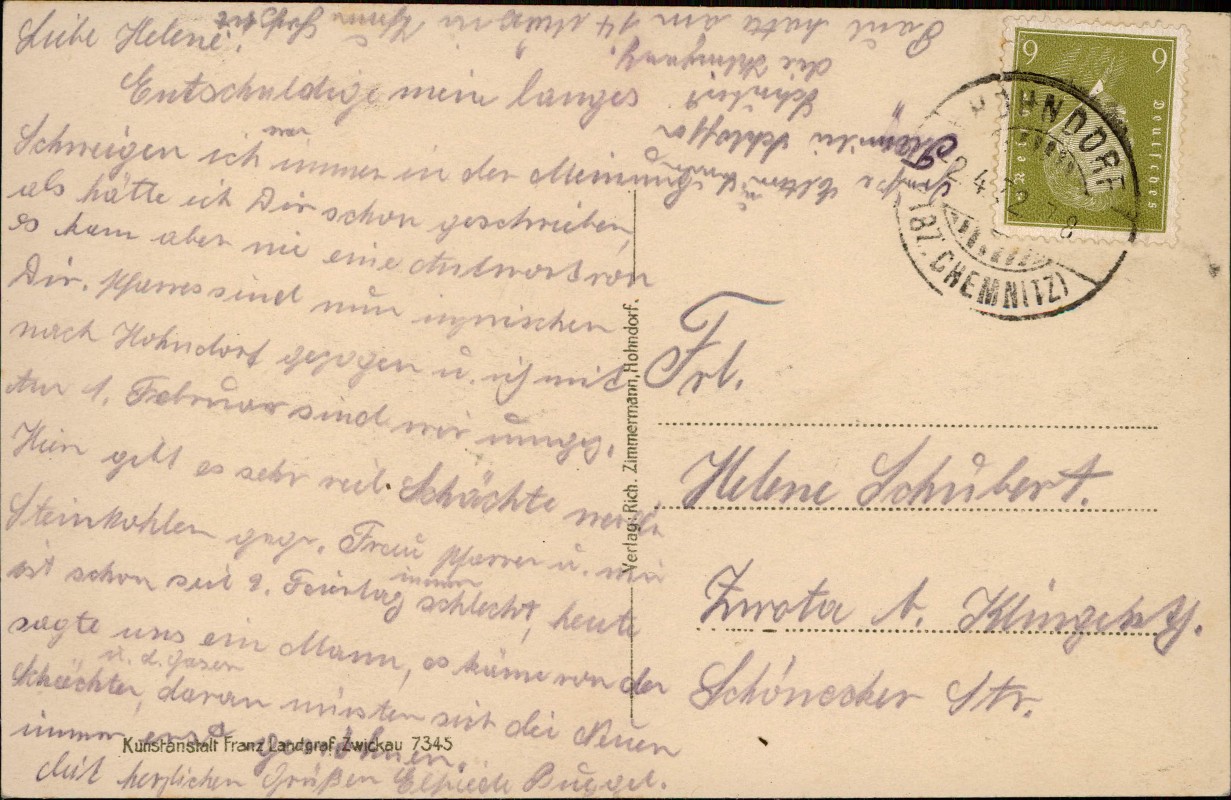 Liebe Helene!
Entschuldige mein langes
Schweigen ich war immer in der Meinung
als hätte ich Dir schon geschrieben,
es kam aber nie eine Antwort von
Dir. Pfarres sind nun inzwischen
nach Hohndorf gezogen u. ich mit
Am 1. Februar sind wir umgez.
Hier gibt es sehr viel Schächte
Steinkohlen gegr. Frau Pfarrer u. mir
ist schon seit 2. Feiertag immer schlecht, heute
sagte uns ein Mann, es käme von den
Schächten, u. d. Gasen daran müsten sich die Neuen
immer erst gewöhnen.
Mit herzlichen Grüßen Elfriede
Paul hatte am 14
die
Schubert
Familie Schlosser
9 9
Deutsches
HOHNDORF
(BZ. CHEMNITZ)
Frl.
Helene Schubert.
Zwota b. Klingenth.
Schönecker Str.
Verlag: Rich. Zimmermann, Hohndorf.
Kunstanstalt Franz Landgraf, Zwickau 7345